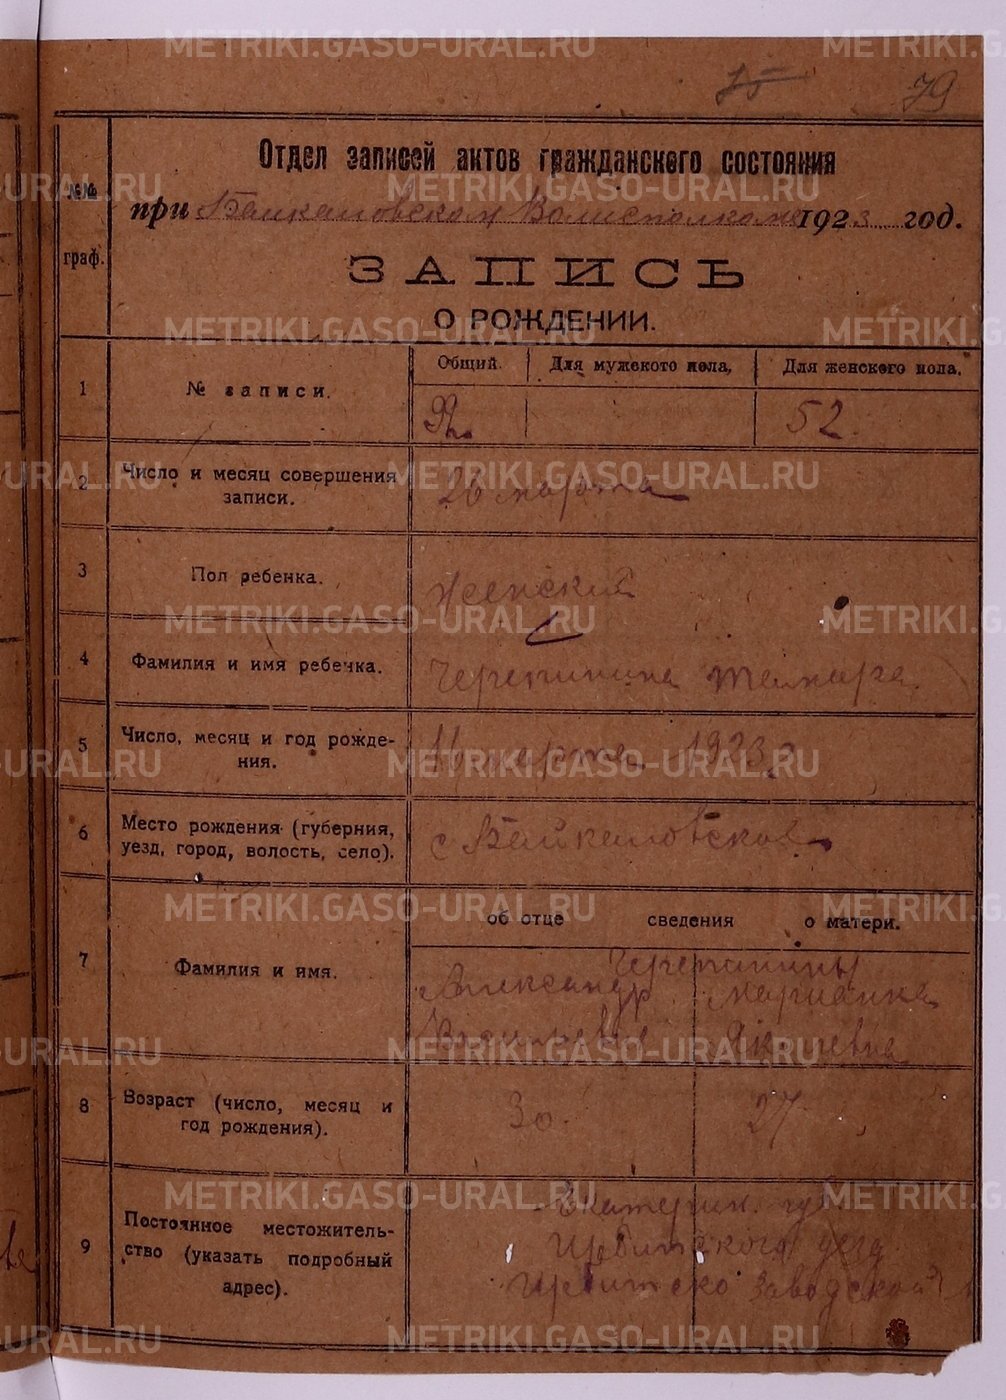 METRIKI.GASO-URAL.RU
79
Отдел записей актов гражданского состояния
№№ граф.
при Байкаловском Волисполкоме 1923 год.
ЗАПИСЬ
О РОЖДЕНИИ.
1 № записи. Общий. Для мужского пола, Для женского пола.
92. 52.
2 Число и месяц совершения записи. 26 марта
3 Пол ребенка. женский
4 Фамилия и имя ребенка. Черепанина Тамара
5 Число, месяц и год рождения. 11 марта 1923 г
6 Место рождения (губерния, уезд, город, волость, село). с Байкаловское
об отце сведения о матери.
7 Фамилия и имя.
Александр Марианна
Васильевич
8 Возраст (число, месяц и год рождения). 30. 27
9 Постоянное местожительство (указать подробный адрес).
Екатерин. губ.
Ирбитского уезд
Ирбитско Заводской